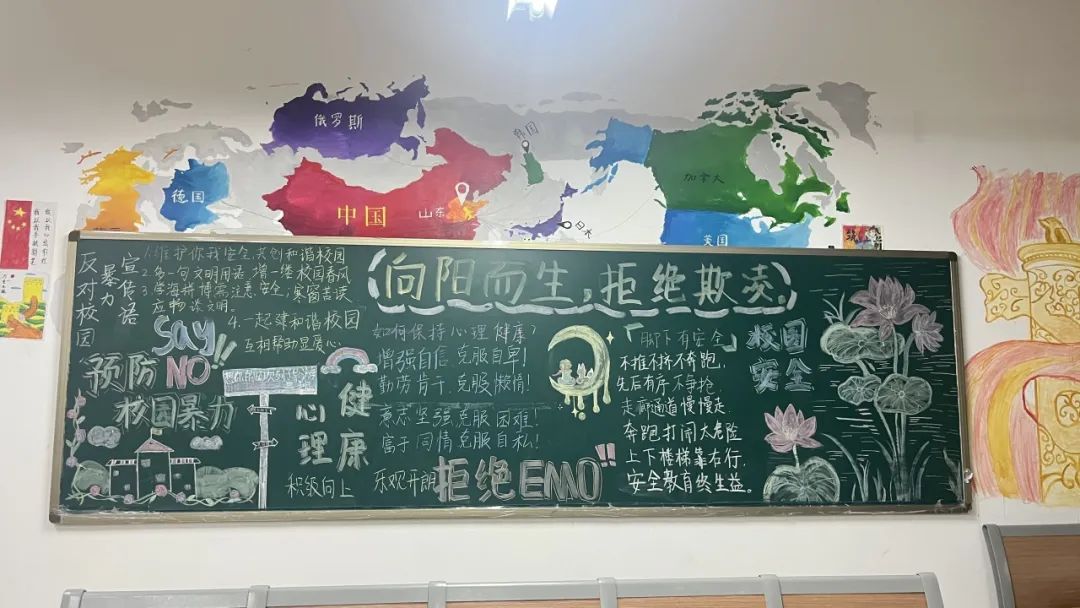 俄罗斯
韩国
德国
加拿大
中国
山东
日本
美国
向阳而生,拒绝欺凌
反对校园
暴力
宣传语
1.维护你我安全,共创和谐校园
2.多一句文明用语,增一缕校园春风
3.学海拼搏需注意安全,寒窗苦读
4.一起建和谐校园
互相帮助显爱心
SAY
NO!!
预防
校园暴力
心理
健康
积极向上
如何保持心理健康?
增强自信,克服自卑!
勤劳肯干,克服懒惰!
意志坚强,克服困难!
富于同情,克服自私!
乐观开朗
拒绝EMO"
「脚下有安全」
不推不挤不奔跑,
先后有序不争抢.
走廊通道慢慢走.
奔跑打闹太危险
上下楼梯靠右行,
安全教育终生益。
校园
安全